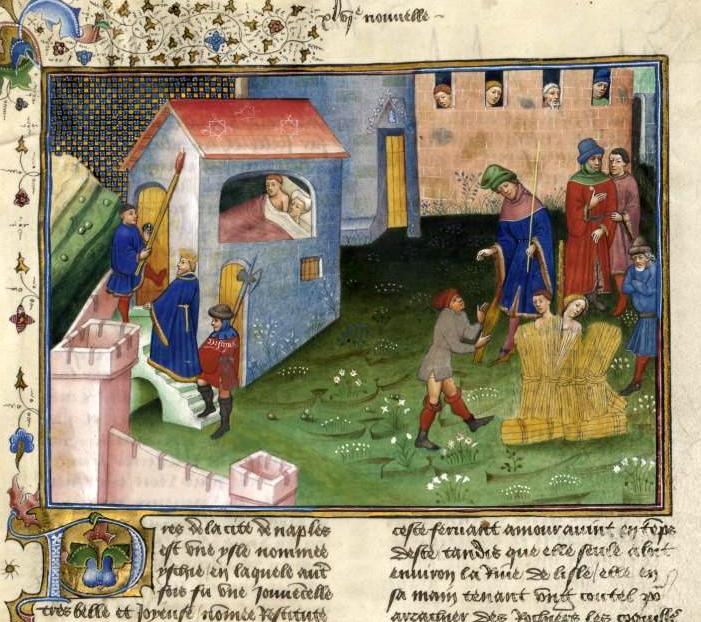 xlvi.e nouvelle
Pres de la cite de naples
est une ysle nommee
yschie en laquele aut
fois fu une jouvecelle
tres belle et joyeuse nomee Restitute
ceste servant amour avint en
deste tandis que elle seule aloit
environ la rive de lisle elle en
sa main tenant ung coutel
arracher des rochiers les